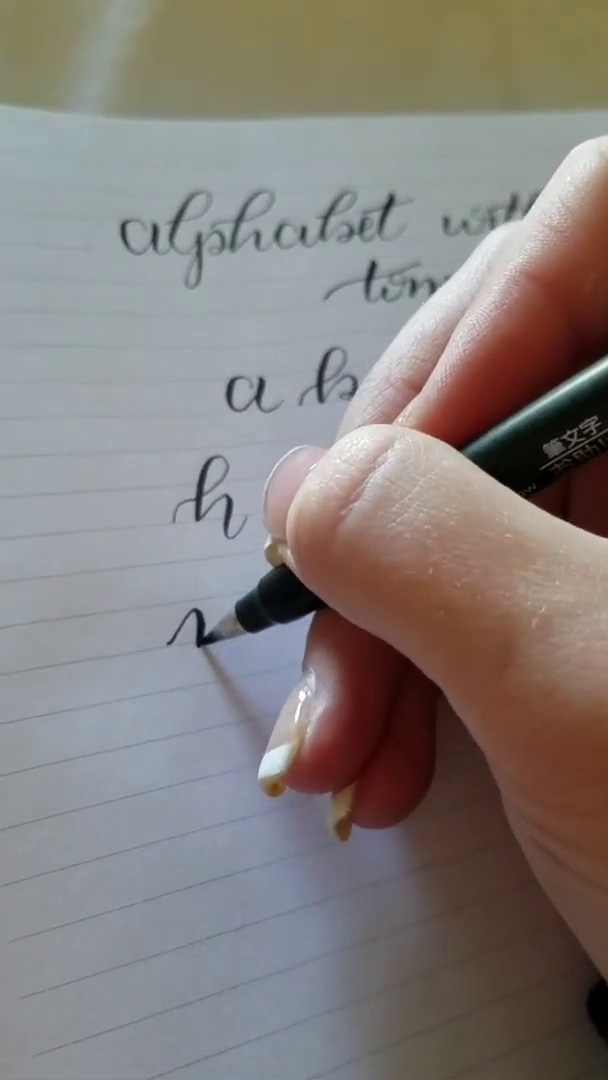 alphabet with
tom
a b
h
筆文字